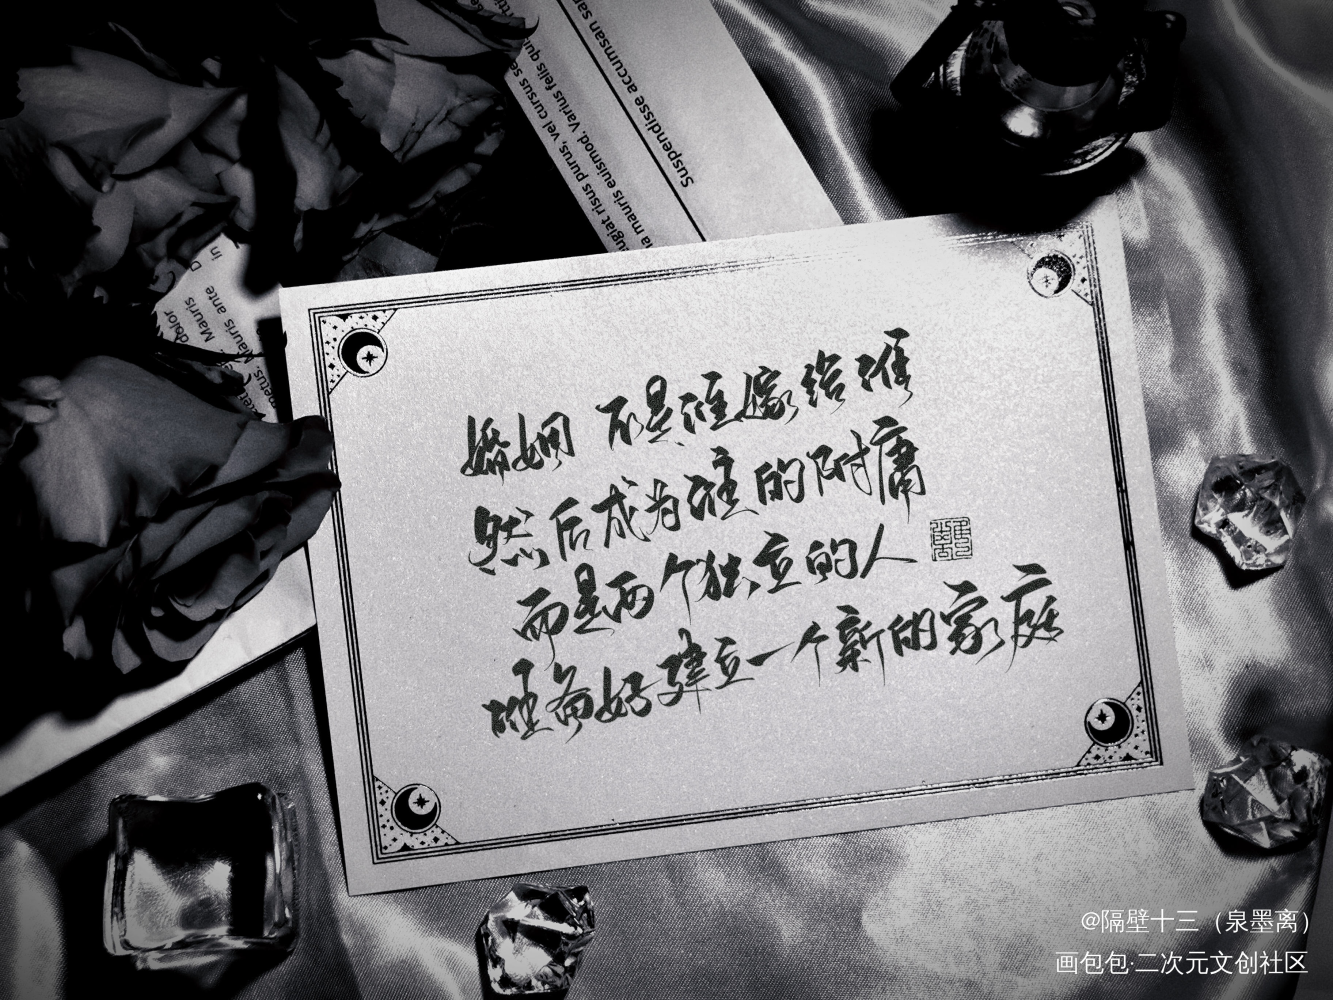 Suspendisse accumsan sap
na mauris euismod. Varius felis qui
ugiat risus purus, vel cursus se
In
D
Mauris ante
Mauris
dolor
metus,
婚姻 不是谁嫁给谁
然后成为谁的附庸
而是两个独立的人
准备好建立一个新的家庭
@隔壁十三（泉墨离）
画包包·二次元文创社区